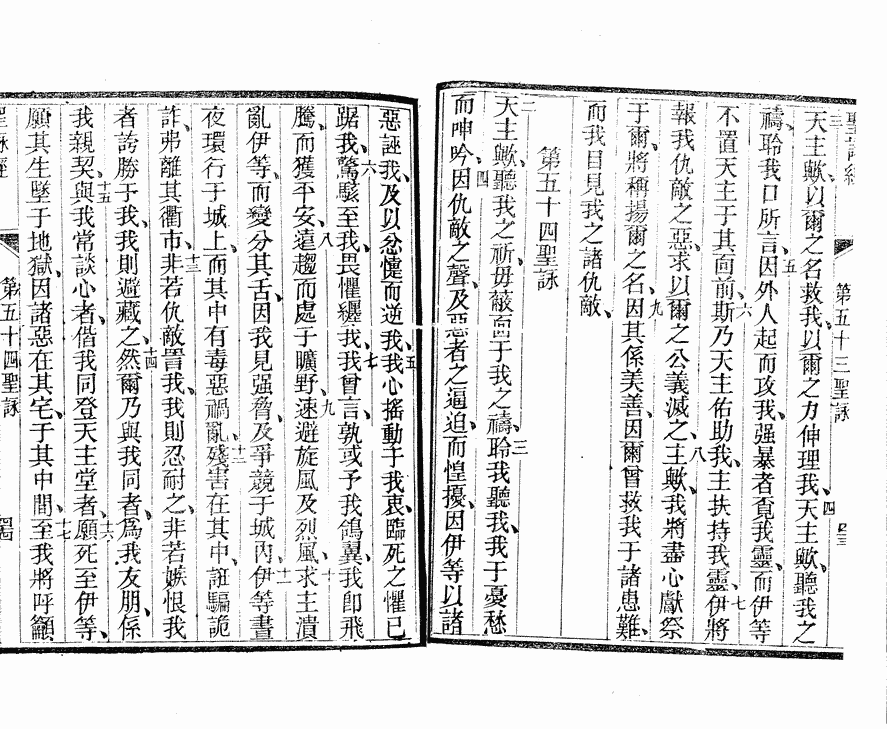 聖詠經
第五十三聖詠
三天主歟、以爾之名救我、以爾之力伸理我、四天主歟、聽我之
禱、聆我口所言、五因外人起而攻我、强暴者覔我靈、而伊等
不置天主于其向前、六斯乃天主佑助我、主扶持我靈、七伊將
報我仇敵之惡、求以爾之公義滅之、八主歟、我將盡心獻祭
于爾、將稱揚爾之名、因其係美善、九因爾曾救我于諸患難、
而我目見我之諸仇敵、
第五十四聖詠
二天主歟、聽我之祈、毋蔽面于我之禱、三聆我聽我、我于憂愁
而呻吟、四因仇敵之聲、及惡者之逼迫、而惶擾、因伊等以諸
惡誣我、及以忿懥而逆我、五我心搖動于我衷、臨死之懼已
踞我、六驚駭至我、畏懼纒我、七我曾言、孰或予我鴿翼、我卽飛
騰、而獲平安、八遠趨而處于曠野、九速避旋風及烈風、十求主潰
亂伊等、而變分其舌、因我見强脅及爭競于城內、十一伊等晝
夜環行于城上、而其中有毒惡禍亂、十二殘害在其中、誑騙詭
詐、弗離其衢市、十三非若仇敵詈我、我則忍耐之、非若嫉恨我
者誇勝于我、我則避藏之、十四然爾乃與我同者、爲我友朋、係
我親契、十五與我常談心者、偕我同登天主堂者、十六願死至伊等、
願其生墜于地獄、因諸惡在其宅、于其中間、十七至我將呼籲
聖詠經
第五十四聖詠